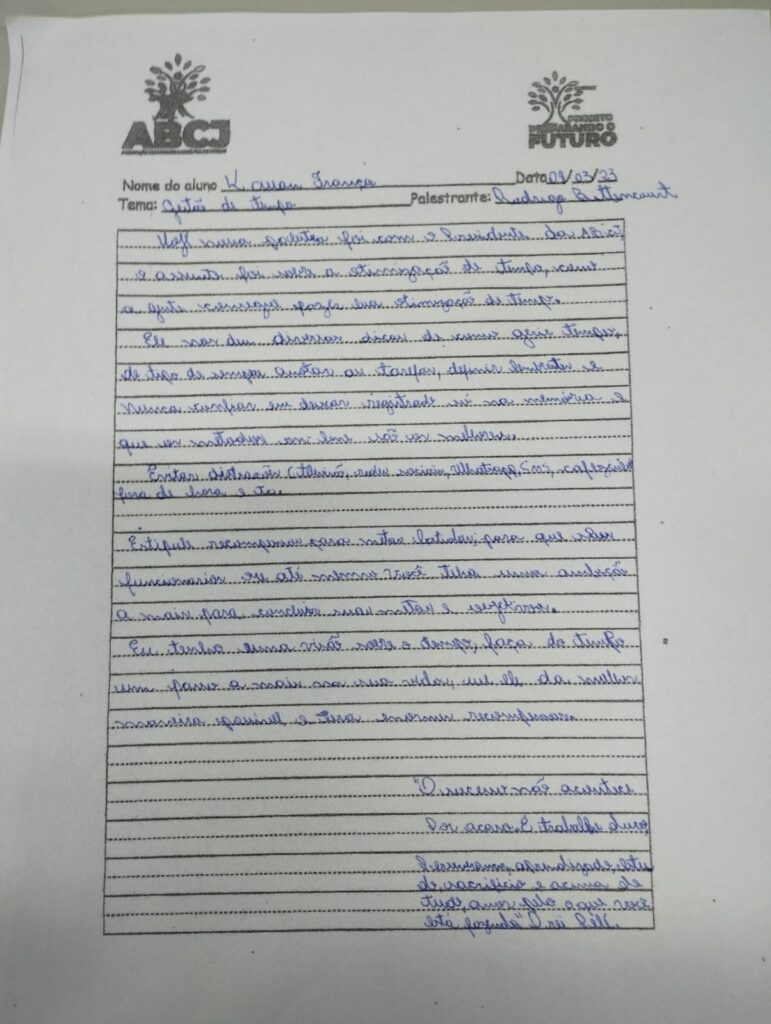 ABCJ
PROJETO
PREPARANDO O
FUTURO
Nome do aluno Kauan França Data 09/03/23
Tema: Gestão de tempo Palestrante: Rodrigo Bittencourt
nossa palestra foi com o Presidente da ABCJ,
o assunto foi sobre a otimização de tempo, como
a gente consegue fazer essa otimização de tempo.
Ele nos deu diversas dicas de como gerir tempo,
do tipo de sempre anotar as tarefas, definir e
nunca confiar em deixar registrado só na memória e
que os metodos on line são os melhores.
Evitar distrações (televisão, redes sociais, Whatsapp, Sms, cafezinho
fora de hora e tc.
Estipule recompensas para metas batidas, para que seus
funcionarios ou até mesmo você tenha uma ambição
a mais para concluir suas metas e
Eu tenho uma visão sobre o tempo, faça do tempo
um passo a mais na sua vida, use ele da melhor
maneira possivel e tera enormes recompensas.
"O sucesso não acontece
Por acaso. É trabalho duro,
Perseverança, aprendizado, estu
do, sacrificio e acima de
tudo, amor pelo o que você
está fazendo" O rei Pelé.